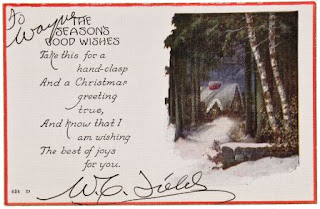 To Wayne
THE
SEASON'S
GOOD WISHES
Take this for a
hand-clasp
And a Christmas
greeting
true,
And know that I
am wishing
The best of joys
for you.
W. C. Fields